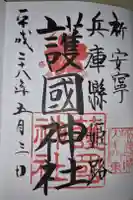 祈 安寧
兵庫縣姫路
護國神社
平成二十八年五月三日